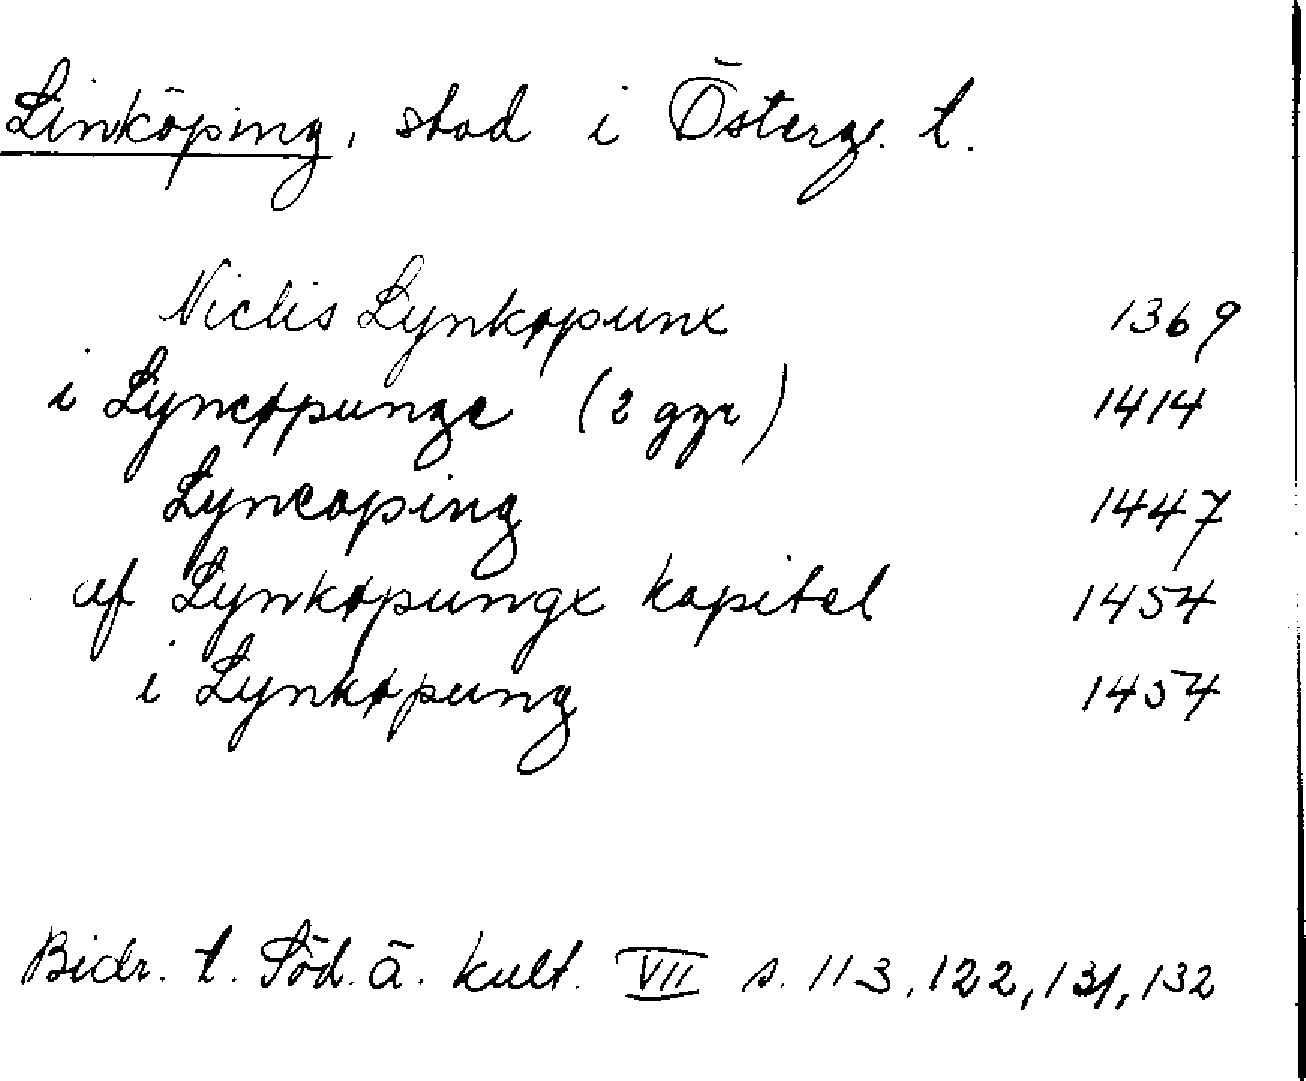 Linköping, stad i Österg. l.
Niclis Lynkøpunx 1369
i Lyncøpunge (2 ggr) 1414
Lyncoping 1447
af Lynkøpungx kapitel 1454
i Lynkøpung 1454
Bidr. t. Söd. ä. kult. VII s. 113, 122, 131, 132